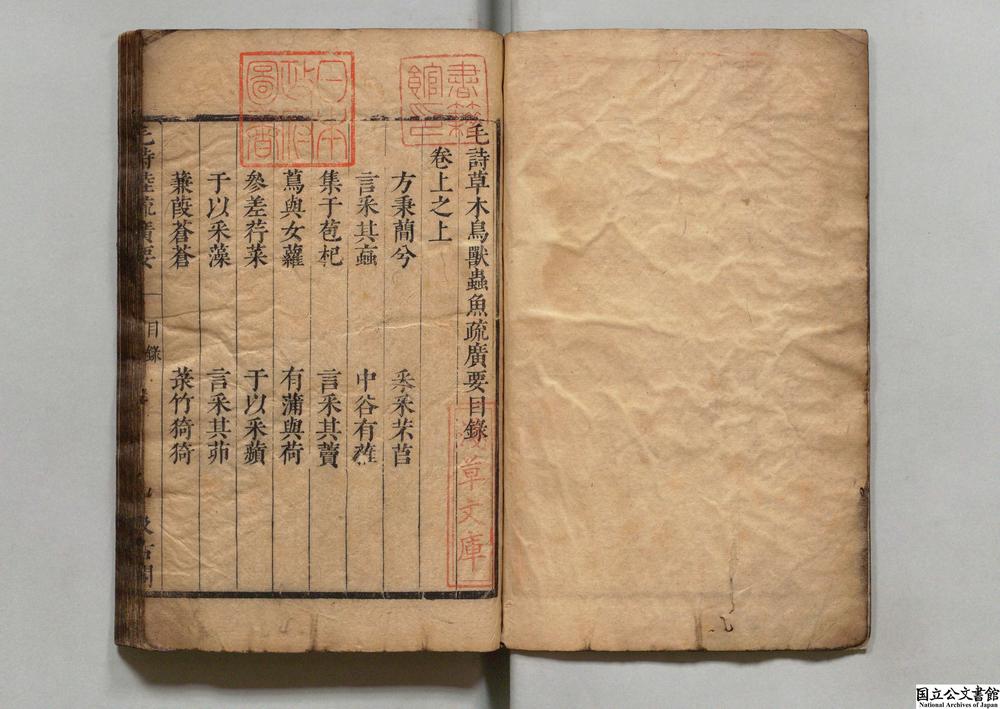 毛詩草木鳥獸蟲魚疏廣要目錄
卷上之上
方秉蕑兮
采采芣苢
言采其蝱
中谷有蓷
集于苞杞
言采其藚
蔦與女蘿
有蒲與荷
參差荇菜
于以采蘋
于以采藻
言采其茆
蒹葭蒼蒼
菉竹猗猗
毛詩陸疏廣要
目錄
汲古閣
日本政府圖書
書籍館印
草文庫
国立公文書館
National Archives of Japan